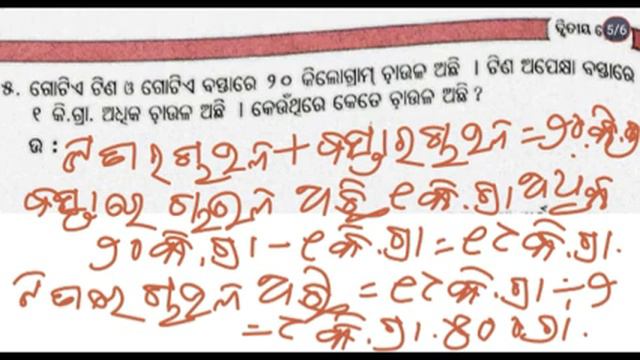 ଦ୍ୱିତୀୟ 5/6
୫. ଗୋଟିଏ ଟିଣ ଓ ଗୋଟିଏ ବସ୍ତାରେ ୨୦ କିଲୋଗ୍ରାମ୍ ଚାଉଳ ଅଛି । ଟିଣ ଅପେକ୍ଷା ବସ୍ତାରେ
୧ କି.ଗ୍ରା. ଅଧିକ ଚାଉଳ ଅଛି । କେଉଁଥିରେ କେତେ ଚାଉଳ ଅଛି ?
ଉ : ଚାଉଳ + ବସ୍ତାର ଚାଉଳ = ୨୦ କି.ଗ୍ରା
ବସ୍ତାରେ ଚାଉଳ ଅଛି ୧ କି.ଗ୍ରା ଅଧିକ
୨୦ କି.ଗ୍ରା - ୧ କି.ଗ୍ରା = ୧୯ କି.ଗ୍ରା.
ଚାଉଳ ଅଛି = ୧୯ କି.ଗ୍ରା ÷ ୨
= ୯ କି.ଗ୍ରା. ୫୦୦ ଗ୍ରା.